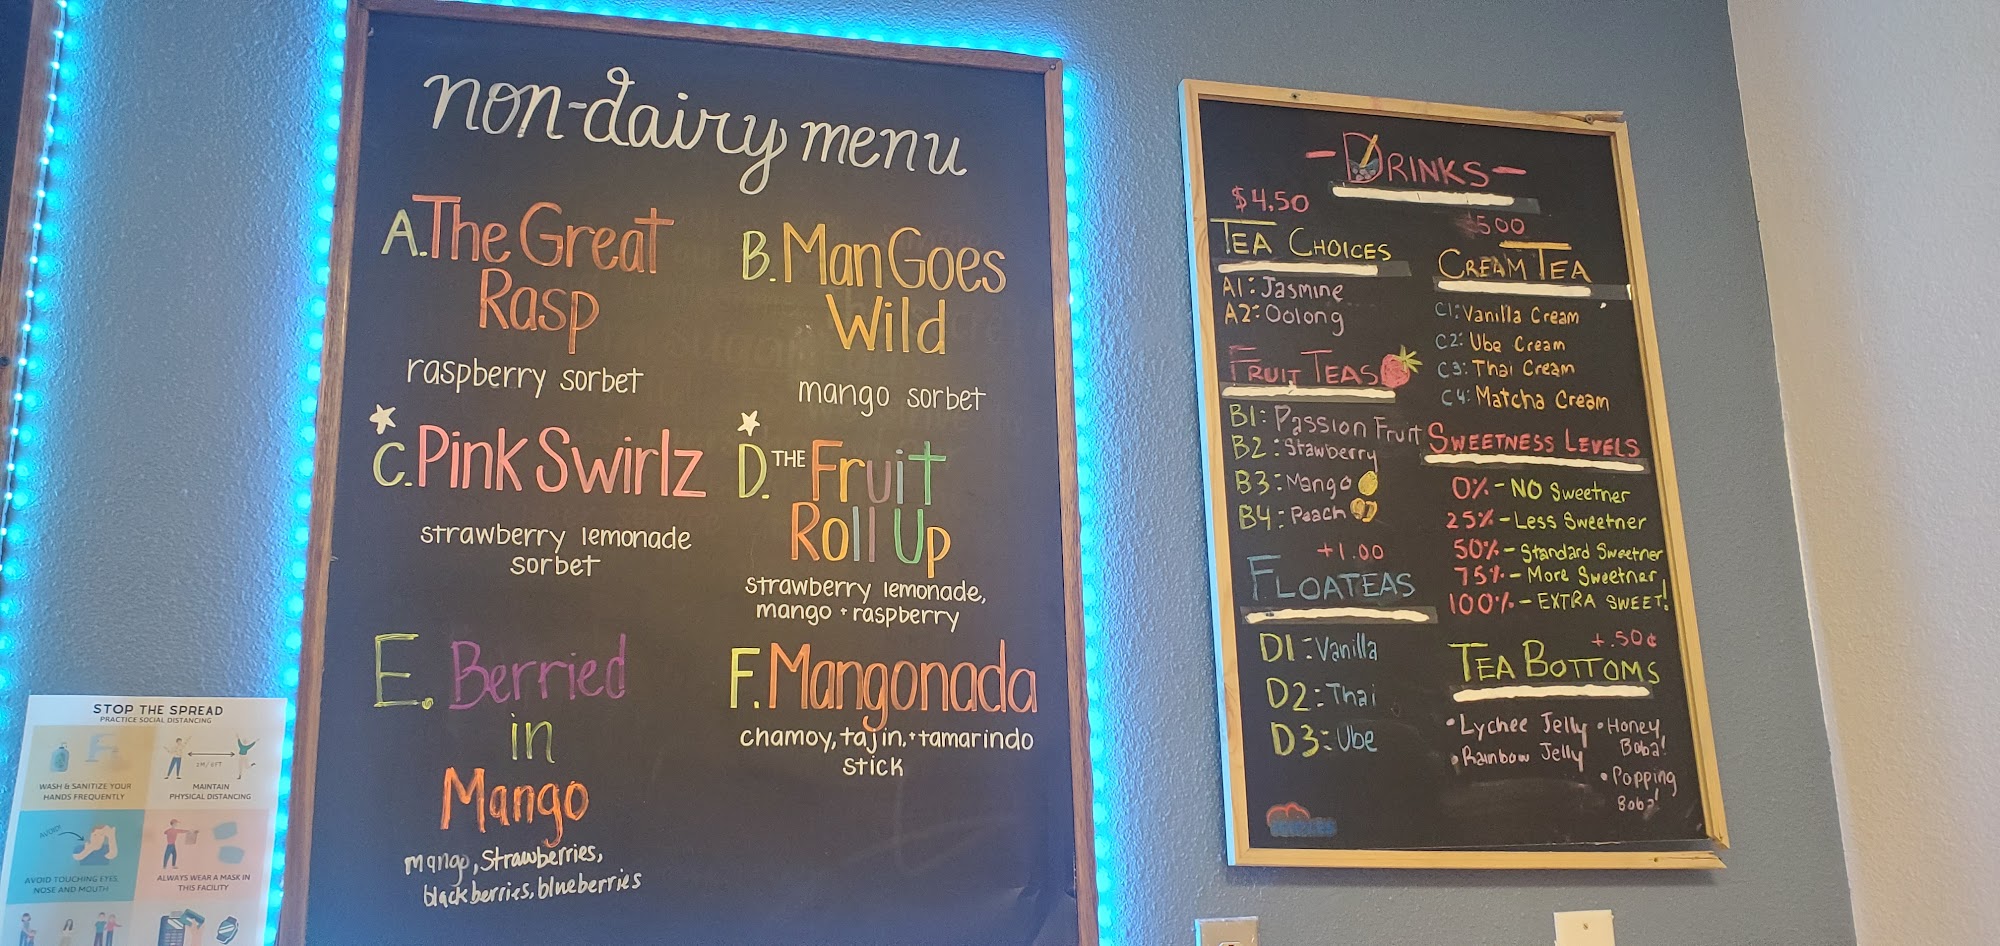 non-dairy menu
A. The Great
Rasp
raspberry sorbet
B. Man Goes
Wild
mango sorbet
C. Pink Swirlz
strawberry lemonade
sorbet
D. THE Fruit
Roll Up
strawberry lemonade,
mango + raspberry
E. Berried
in
Mango
mango, strawberries,
blackberries, blueberries
F. Mangonada
chamoy, tajin, + tamarindo
stick
- DRINKS -
$4.50
TEA CHOICES
A1: Jasmine
A2: Oolong
FRUIT TEAS
B1: Passion Fruit
B2: Stawberry
B3: Mango
B4: Peach
+1.00
FLOATEAS
D1: Vanilla
D2: Thai
D3: Ube
$5.00
CREAM TEA
C1: Vanilla Cream
C2: Ube Cream
C3: Thai Cream
C4: Matcha Cream
SWEETNESS LEVELS
0% - NO Sweetner
25% - Less Sweetner
50% - Standard Sweetner
75% - More Sweetner
100% - EXTRA SWEET!
+.50¢
TEA BOTTOMS
• Lychee Jelly
• Rainbow Jelly
• Honey
Boba!
• Popping
Boba!
STOP THE SPREAD
PRACTICE SOCIAL DISTANCING
WASH & SANITIZE YOUR
HANDS FREQUENTLY
2M / 6FT
MAINTAIN
PHYSICAL DISTANCING
AVOID!
AVOID TOUCHING EYES,
NOSE AND MOUTH
ALWAYS WEAR A MASK IN
THIS FACILITY